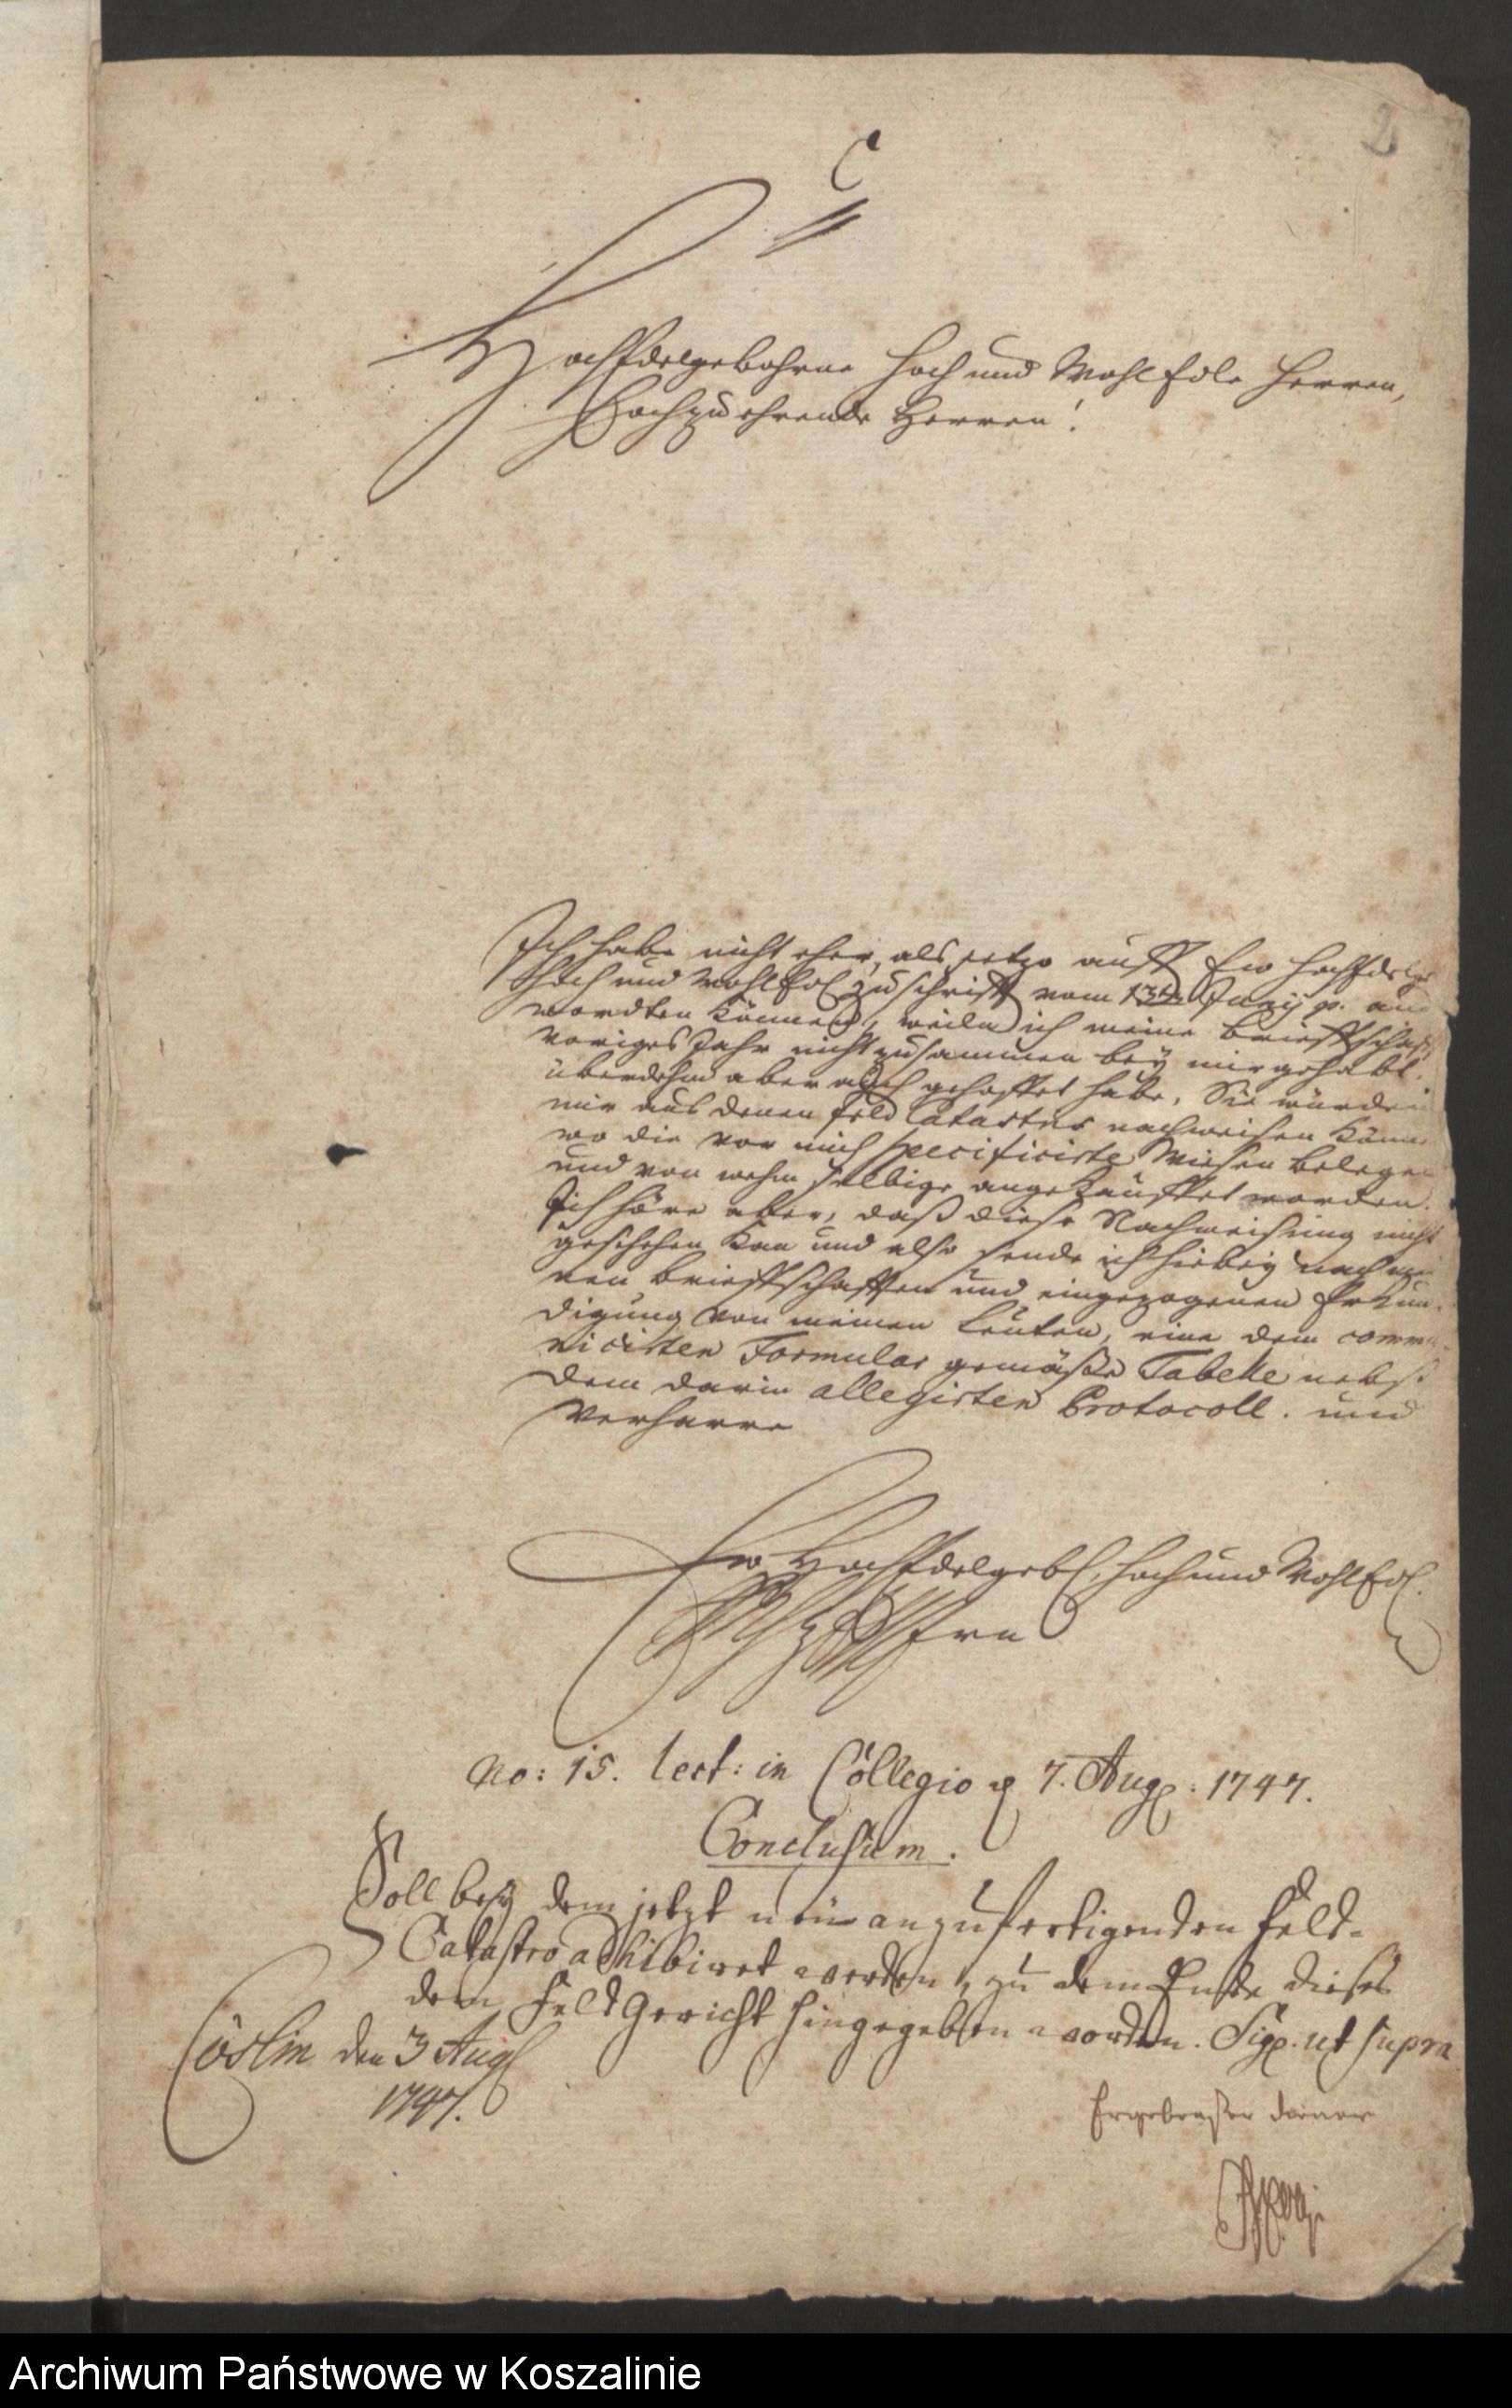 2
HochEdelgebohrne Hoch und WohlEdle Herren,
Hochzuehrende Herren!
Ich habe nicht eher, als jetzo auff Ew HochEdelge
Hoch und WohlEdl Zuschrifft vom 13ten Junij p. ant
wordten können, weiln ich meine Brieffschafft
voriges Jahr nicht zusammen bey mir gehabt,
überdehm aber auch gehoffet habe, Sie würden
mir aus denen Feld Catastris nachweisen könn
wo die vor mich specificirte Wiesen belegen
und von wehm selbige angekauffet worden.
Ich höre aber, daß diese Nachweisung nicht
geschehen kan und also sende ich hiebey nach mei
nen Brieffschafften und eingezogenen Erkun-
digung von meinen Leuten, eine dem commu-
nicirten Formular gemäße Tabelle nebst
dem darin allegirten Protocoll. und
verharre
Ew HochEdelgebl, Hoch und WohlEdl.
No: 15. lect: in Collegio d 7. Aug: 1747.
Conclusum.
Soll bey dem jetzt neu anzufertigenden Feld-
Catastro adhibiret werden, zu dem Ende dieses
dem Feld Gericht hingegeben worden. Sig. ut supra
Cöslin den 3 Aug
1747.
Ergebenster Diener
Archiwum Państwowe w Koszalinie